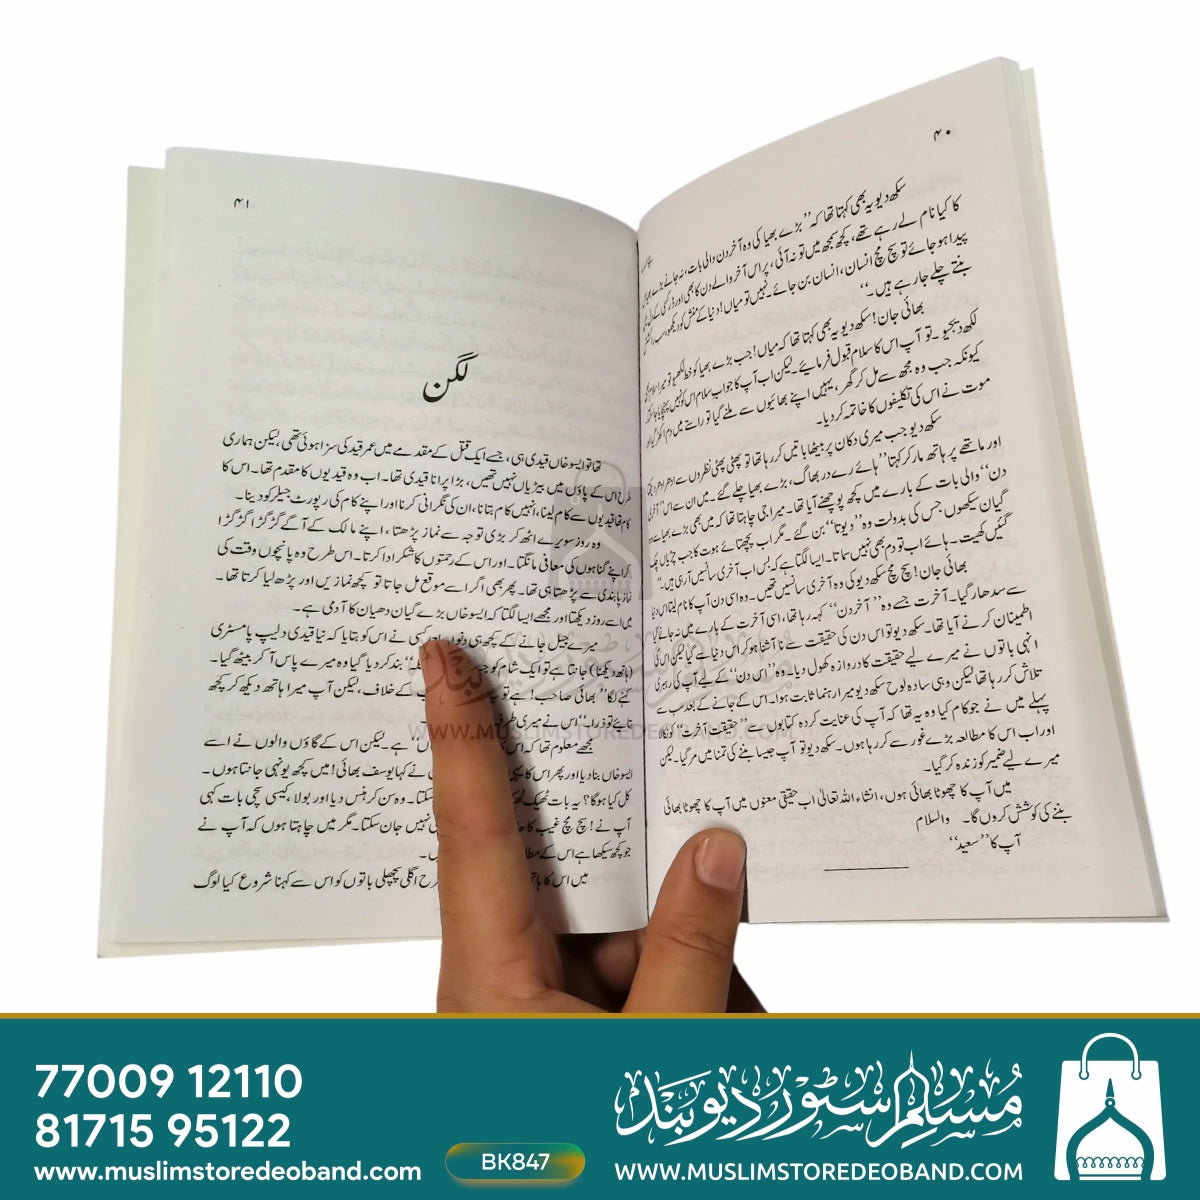 ۴۰
سکھ دیو یہ بھی کہتا تھا کہ ’’بڑے بھیا کی وہ آخر دن والی بات، نہ جانے بڑے بھیا
کا کیا نام لے رہے تھے، کچھ سمجھ میں تو نہ آئی، پر اس آخر والے دن کا بھی اور ڈر کسی کے دل میں
پیدا ہو جائے تو سچ مچ انسان، انسان بن جائے۔ نہیں تو میاں! دنیا کے منش کو دیکھو، سب راکشش
بنتے چلے جا رہے ہیں۔‘‘
بھائی جان! سکھ دیو یہ بھی کہتا تھا کہ میاں! جب بڑے بھیا کو خط لکھیو تو میرا سلام بھی
لکھ دیجیو۔ تو آپ اس کا سلام قبول فرمایئے۔ لیکن اب آپ کا جواب سلام اس کو نہیں پہنچایا جا سکتا
کیونکہ جب وہ مجھ سے مل کر گھر، یہیں اپنے بھائیوں سے ملنے گیا تو راستے میں دم اکھڑ گیا اور
موت نے اس کی تکلیفوں کا خاتمہ کر دیا۔
سکھ دیو جب میری دکان پر بیٹھا باتیں کر رہا تھا تو پھٹی پھٹی نظروں سے ادھر ادھر دیکھتا
اور ماتھے پر ہاتھ مار کر کہتا ’’ہائے رے در بھاگ، بڑے بھیا چلے گئے۔ میں ان سے اس ’’آخری
دن‘‘ والی بات کے بارے میں کچھ پوچھنے آیا تھا۔ میرا جی چاہتا تھا کہ میں بھی بڑے بھیا سے وہ
گیان سیکھوں جس کی بدولت وہ ’’دیوتا‘‘ بن گئے۔ مگر اب پچھتائے ہوت کا جب چڑیاں چگ
گئیں کھیت۔ ہائے اب تو دم بھی نہیں سماتا۔ ایسا لگتا ہے کہ بس اب آخری سانسیں آ رہی ہیں۔‘‘
بھائی جان! سچ مچ سکھ دیو کی وہ آخری سانسیں تھیں۔ وہ اسی دن آپ کا نام لیتا اس دنیا
سے سدھار گیا۔ آخرت جسے وہ ’’آخر دن‘‘ کہہ رہا تھا، اسی آخرت کے بارے میں نہ جانے کیا
اطمینان کرنے آیا تھا۔ سکھ دیو تو اس دن کی حقیقت سے نا آشنا ہو کر اس دنیا سے گیا لیکن اس کی
انہی باتوں نے میرے لیے حقیقت کا دروازہ کھول دیا۔ وہ ’’اس دن‘‘ کے لیے آپ کی رہبری
تلاش کر رہا تھا لیکن وہی سادہ لوح سکھ دیو میرا رہنما ثابت ہوا۔ اس کے جانے کے بعد سب سے
پہلے میں نے جو کام کیا وہ یہ تھا کہ آپ کی عنایت کردہ کتابوں سے ’’حقیقت آخرت‘‘ کو نکالا
اور اب اس کا مطالعہ بڑے غور سے کر رہا ہوں۔ سکھ دیو تو آپ جیسا بننے کی تمنا میں مر گیا۔ لیکن
میرے لیے ضمیر کو زندہ کر گیا۔
میں آپ کا چھوٹا بھائی ہوں، انشاء اللہ تعالیٰ اب حقیقی معنوں میں آپ کا چھوٹا بھائی
بننے کی کوشش کروں گا۔ والسلام
آپ کا ’’سعید‘‘
۴۱
لگن
تھا تو ایسو خاں قیدی ہی، جسے ایک قتل کے مقدمے میں عمر قید کی سزا ہوئی تھی، لیکن ہماری
طرح اس کے پاؤں میں بیڑیاں نہیں تھیں، بڑا پرانا قیدی تھا۔ اب وہ قیدیوں کا مقدم تھا۔ اس کا
کام تھا قیدیوں سے کام لینا، انہیں کام بتانا، ان کی نگرانی کرنا اور اپنے کام کی رپورٹ جیلر کو دینا۔
وہ روز سویرے اٹھ کر بڑی توجہ سے نماز پڑھتا، اپنے مالک کے آگے گڑگڑا گڑگڑا
کر اپنے گناہوں کی معافی مانگتا۔ اور اس کے رحمتوں کا شکر ادا کرتا۔ اس طرح وہ پانچوں وقت کی
نماز پابندی سے پڑھتا ہی تھا۔ پھر بھی اگر اسے موقع مل جاتا تو کچھ نمازیں اور پڑھ لیا کرتا تھا۔
میں اسے روز دیکھتا اور مجھے ایسا لگتا کہ ایسو خاں بڑے گیان دھیان کا آدمی ہے۔
میرے جیل جانے کے کچھ ہی دنوں بعد کسی نے اس کو بتایا کہ نیا قیدی دلیپ پامسٹری
(ہاتھ دیکھنا) جانتا ہے تو ایک شام کو جیسے بند کر دیا گیا وہ میرے پاس آ کر بیٹھ گیا۔
کہنے لگا ’’بھائی صاحب! ہے تو یہ کے خلاف، لیکن آپ میرا ہاتھ دیکھ کر کچھ
بتایئے تو ذرا۔‘‘ اس نے میری طرف
مجھے معلوم تھا کہ اس ہے۔ لیکن اس کے گاؤں والوں نے اسے
ایسو خاں بنا دیا اور پھر اس کا یہی نے کہا یوسف بھائی! میں کچھ یونہی جانتا ہوں۔
کل کیا ہوگا؟ یہ بات ٹھیک سکتا۔ وہ سن کر ہنس دیا اور بولا، کیسی سچی بات کہی
آپ نے! سچ مچ غیب کا نہیں جان سکتا۔ مگر میں چاہتا ہوں کہ آپ نے
جو کچھ سیکھا ہے اس کے ہیں۔
میں اس کا ہاتھ اگلی پچھلی باتوں کو اس سے کہنا شروع کیا لوگ
WWW.MUSLIMSTOREDEOBAND.COM
77009 12110
81715 95122
www.muslimstoredeoband.com
BK847
مسلم سٹور دیوبند
WWW.MUSLIMSTOREDEOBAND.COM